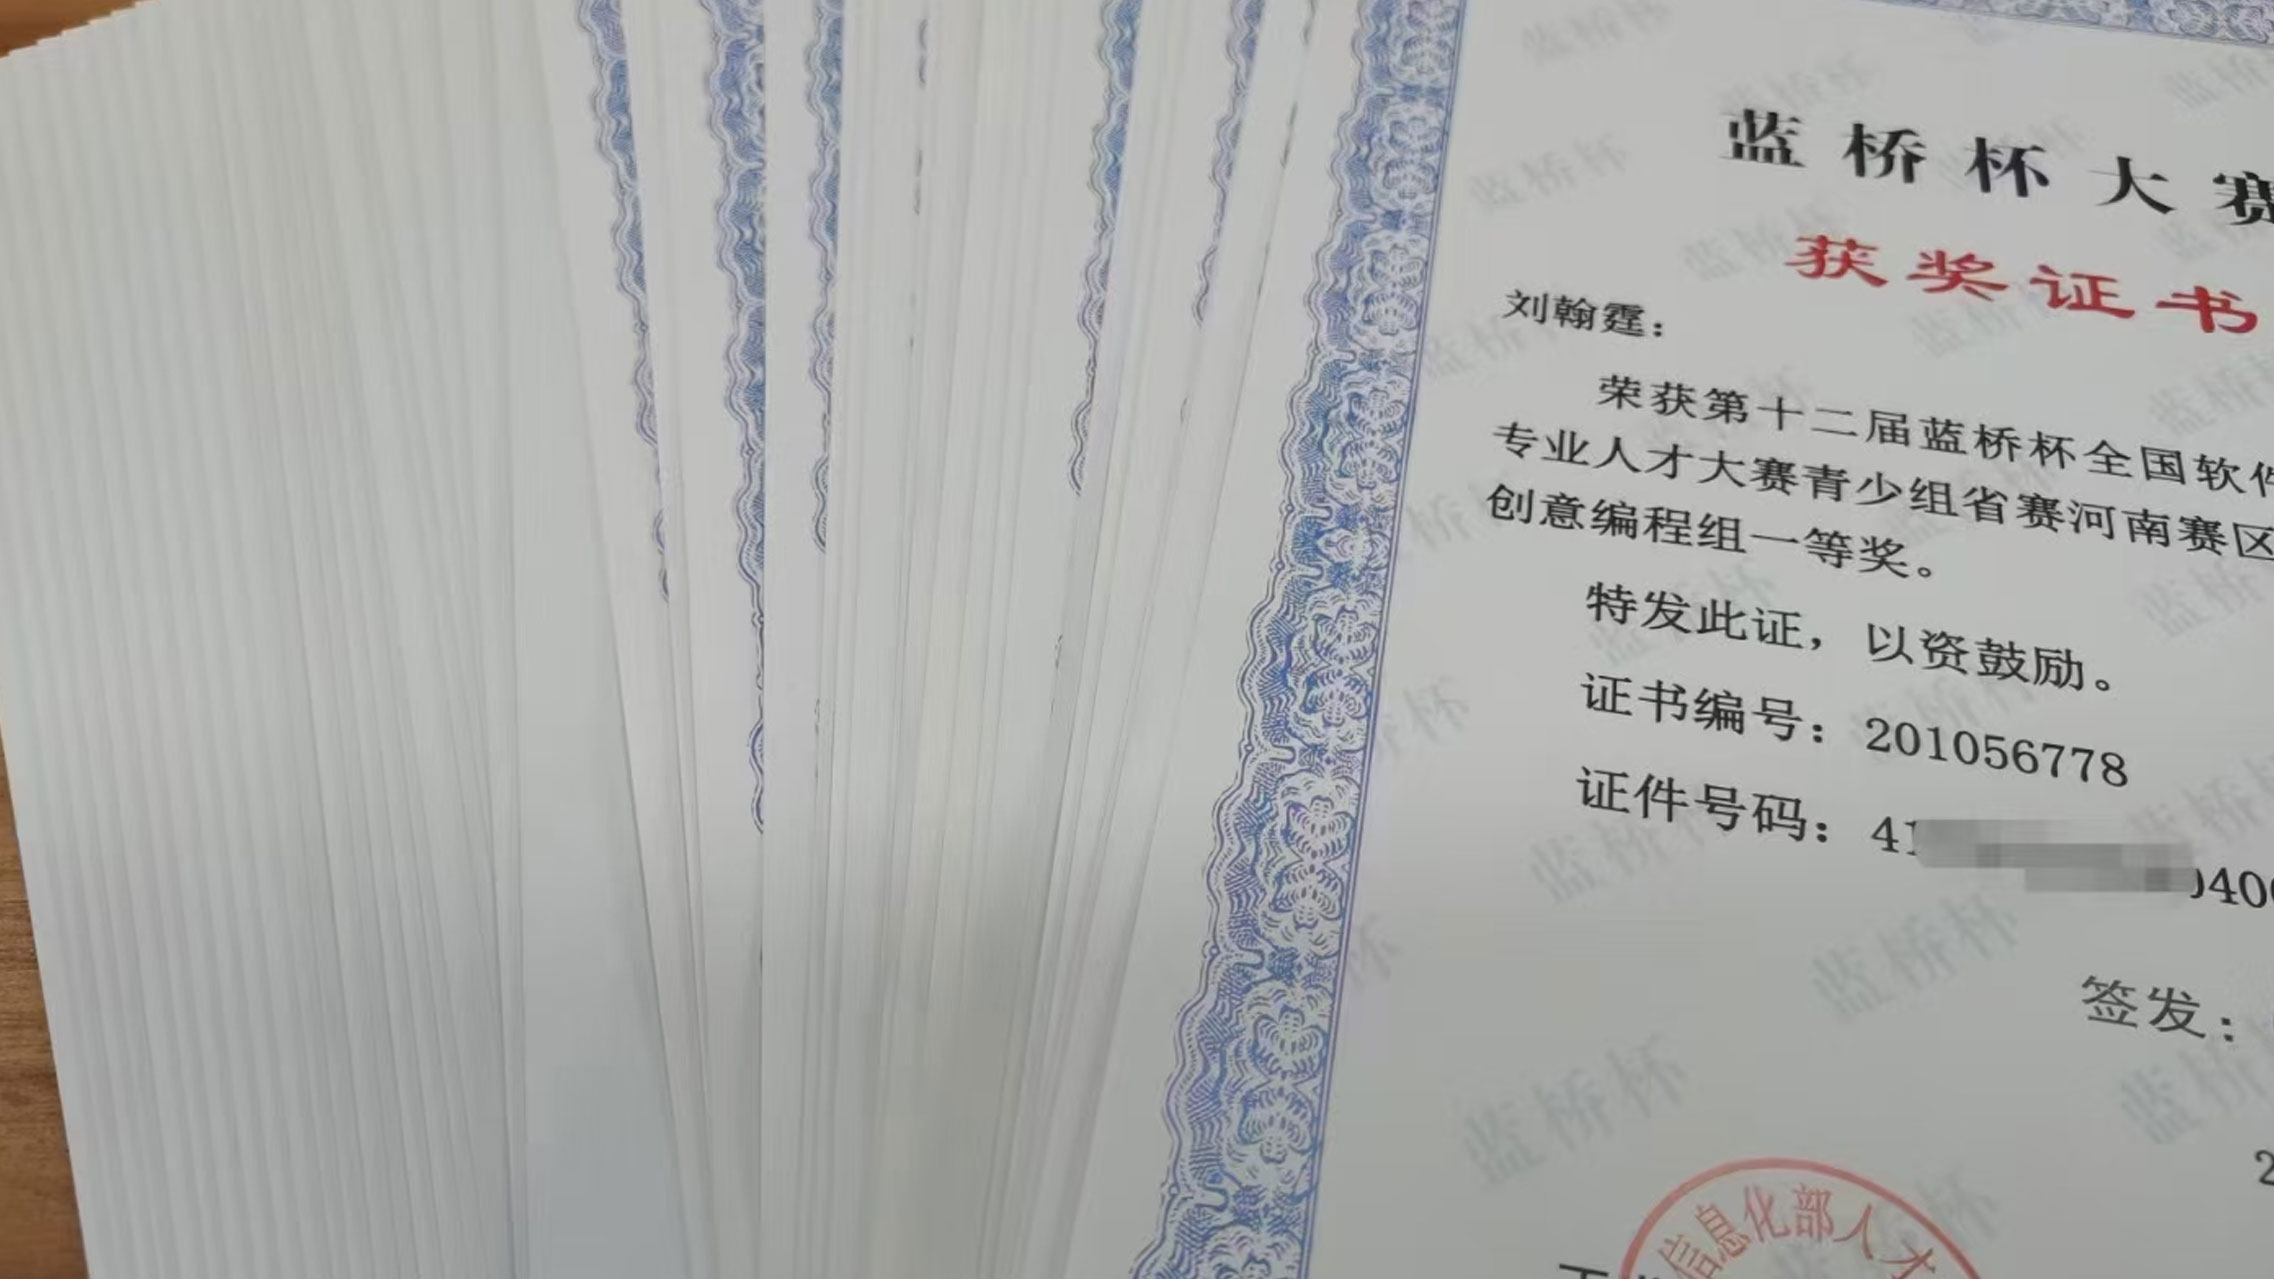 蓝桥杯大赛
获奖证书
刘翰霆：
荣获第十二届蓝桥杯全国软件
专业人才大赛青少组省赛河南赛区
创意编程组一等奖。
特发此证，以资鼓励。
证书编号：201056778
证件号码：41
040
签发：
2
信息化部人才
蓝桥杯